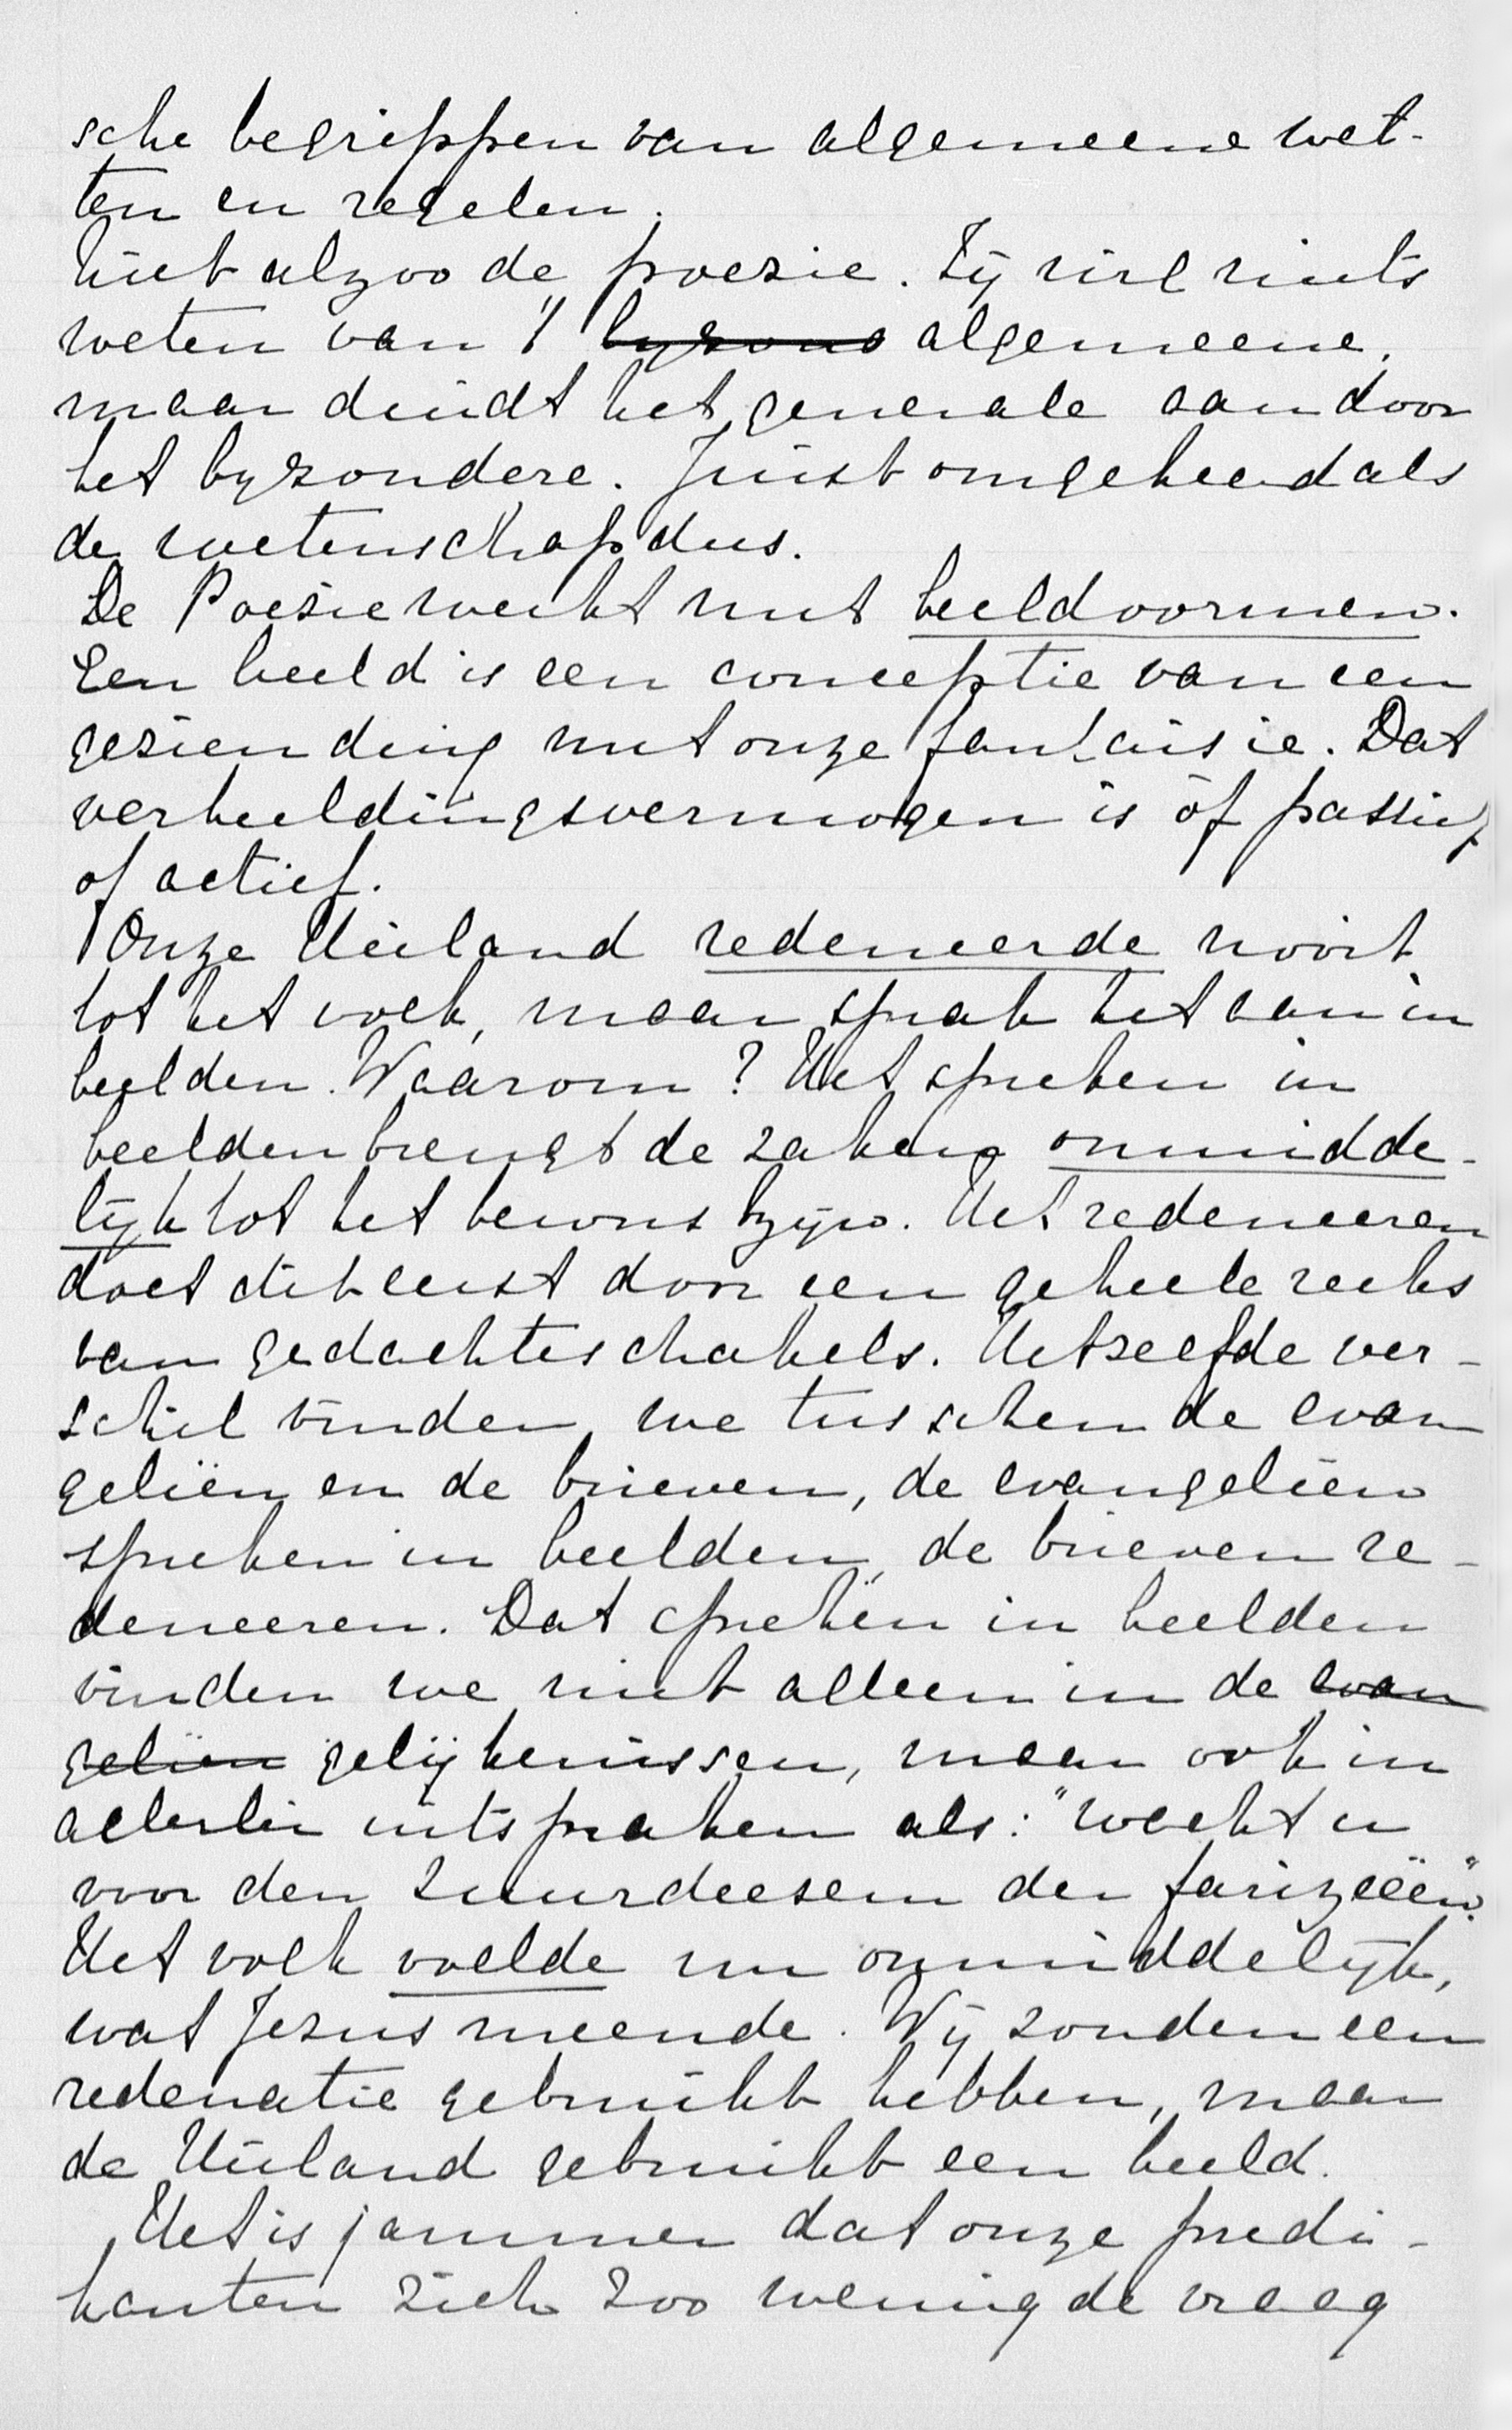 sche begrippen van algemeene wet-
ten en regelen.
Niet alzoo de poezie. Zij wil niets
weten van 't byzond algemeene,
maar duidt het generale aan door
het byzondere. Juist omgekeerd als
de wetenschap dus.
De Poesie werkt met beeldvormen.
Een beeld is een conceptie van een
gezien ding met onze fantaisie. Dat
verbeeldingsvermogen is òf passief
of actief.
Onze Heiland redeneerde nooit
tot het volk, maar sprak het aan in
beelden. Waarom? Het spreken in
beelden brengt de zaken onmidde-
lijk tot het bewustzijn. Het redeneeren
doet dit eerst door een geheele reeks
van gedachteschakels. Hetzelfde ver-
schil vinden we tusschen de evan
geliën en de brieven, de evangeliën
spreken in beelden, de brieven re-
deneeren. Dat spreken in beelden
vinden we niet alleen in de evan
geliën gelijkenissen, maar ook in
allerlei uitspraken als: "wacht u
voor den zuurdeesem der farizeëen".
Het volk voelde nu onmiddelijk,
wat Jezus meende. Wij zouden een
redenatie gebruikt hebben, maar
de Heiland gebruikt een beeld.
Het is jammer dat onze predi-
kanten zich zoo weinig de vraag